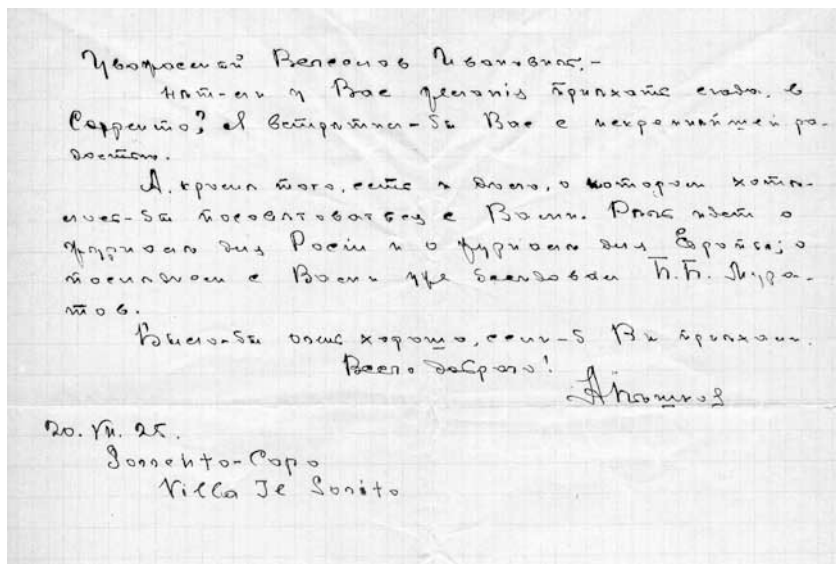 Уважаемый Вячеслав Иванович, -
нѣт-ли у Вас желанiя приѣхать сюда, в
Сорренто? Я встрѣтил-бы Вас с искреннѣйшей ра-
достью.
А, кромѣ того, есть и дѣло, о котором хотѣ-
лось-бы посовѣтоваться с Вами. Рѣчь идет о
журналѣ для Россiи и о журналѣ для Европы; о
послѣднем с Вами уже бесѣдовал П. П. Мура-
тов.
Было-бы очень хорошо, если-б Вы приѣхали.
Всего доброго!
А Пѣшков
20. VII. 25.
Sorrento-Capo
Villa Il Sorito